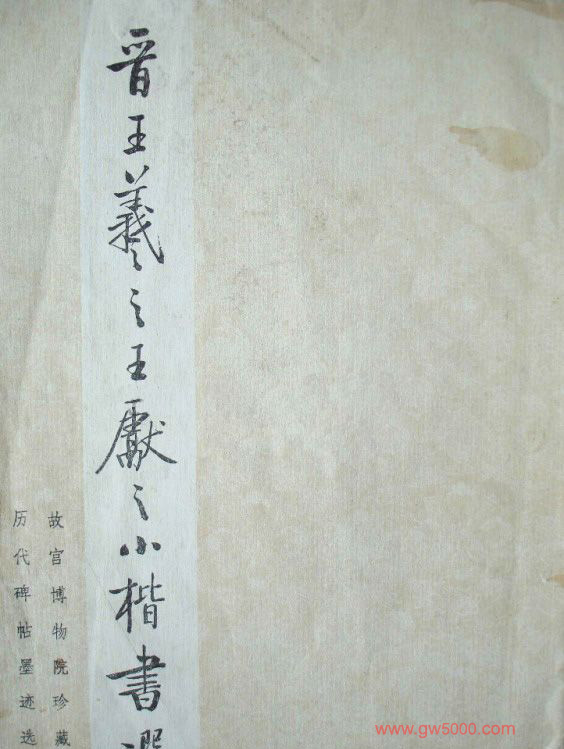 晋王羲之王獻之小楷書選
故宫博物院珍藏
历代碑帖墨迹选
www.gw5000.com